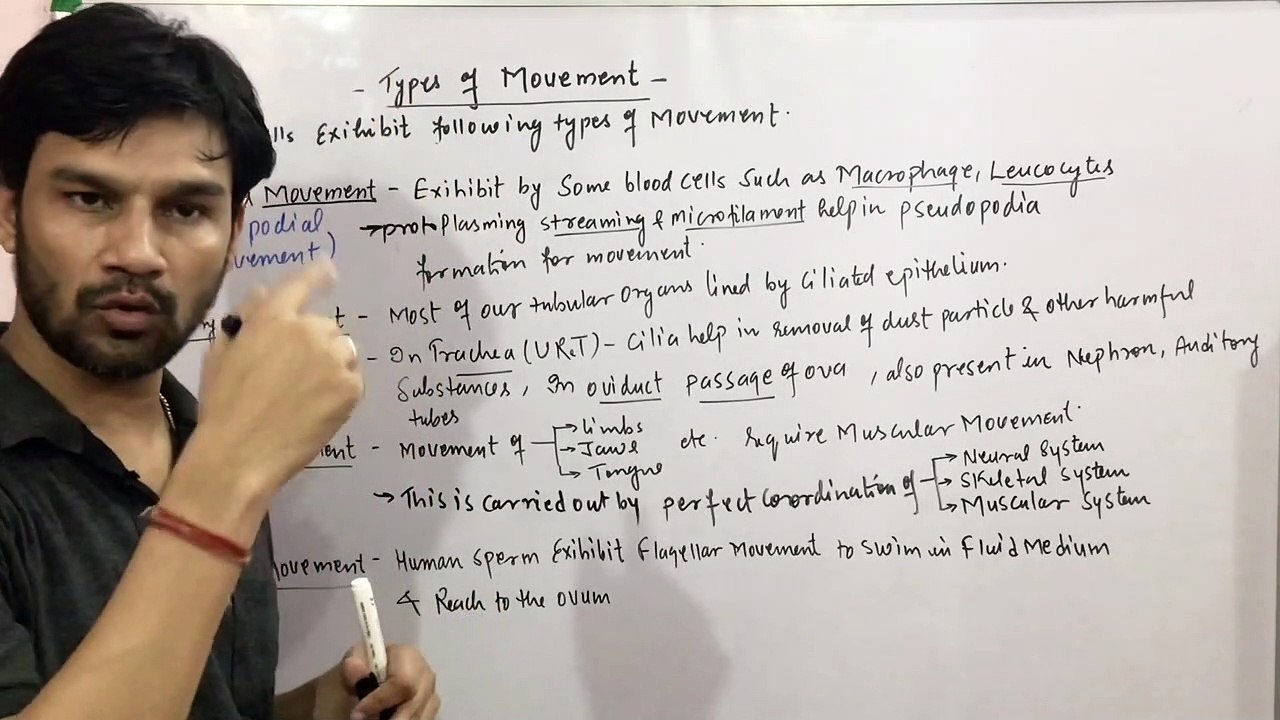 - Types of Movement -
lls Exihibit following types of Movement.
Movement - Exihibit by Some blood cells Such as Macrophage, Leucocytes
podial
vement)
→ protoplasming streaming & microfilament help in pseudopodia
formation for movement.
t - Most of our tubular organs lined by Ciliated epithelium.
- In Trachea (URT) - Cilia help in removal of dust particle & other harmful
Substances, In oviduct passage of ova, also present in Nephron, Auditory
tubes
ment - Movement of → Limbs → Jaws → Tongue etc. require Muscular Movement.
→ This is carried out by perfect coordination of → Neural System → Skeletal System → Muscular System
ovement - Human sperm Exihibit flagellar Movement to swim in fluid Medium
& Reach to the ovum